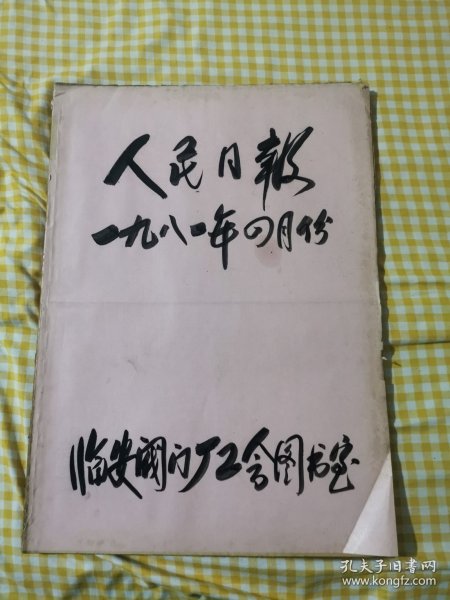 人民日報
一九八一年四月份
临安阀门厂工会图书室
孔夫子旧书网
www.kongfz.com